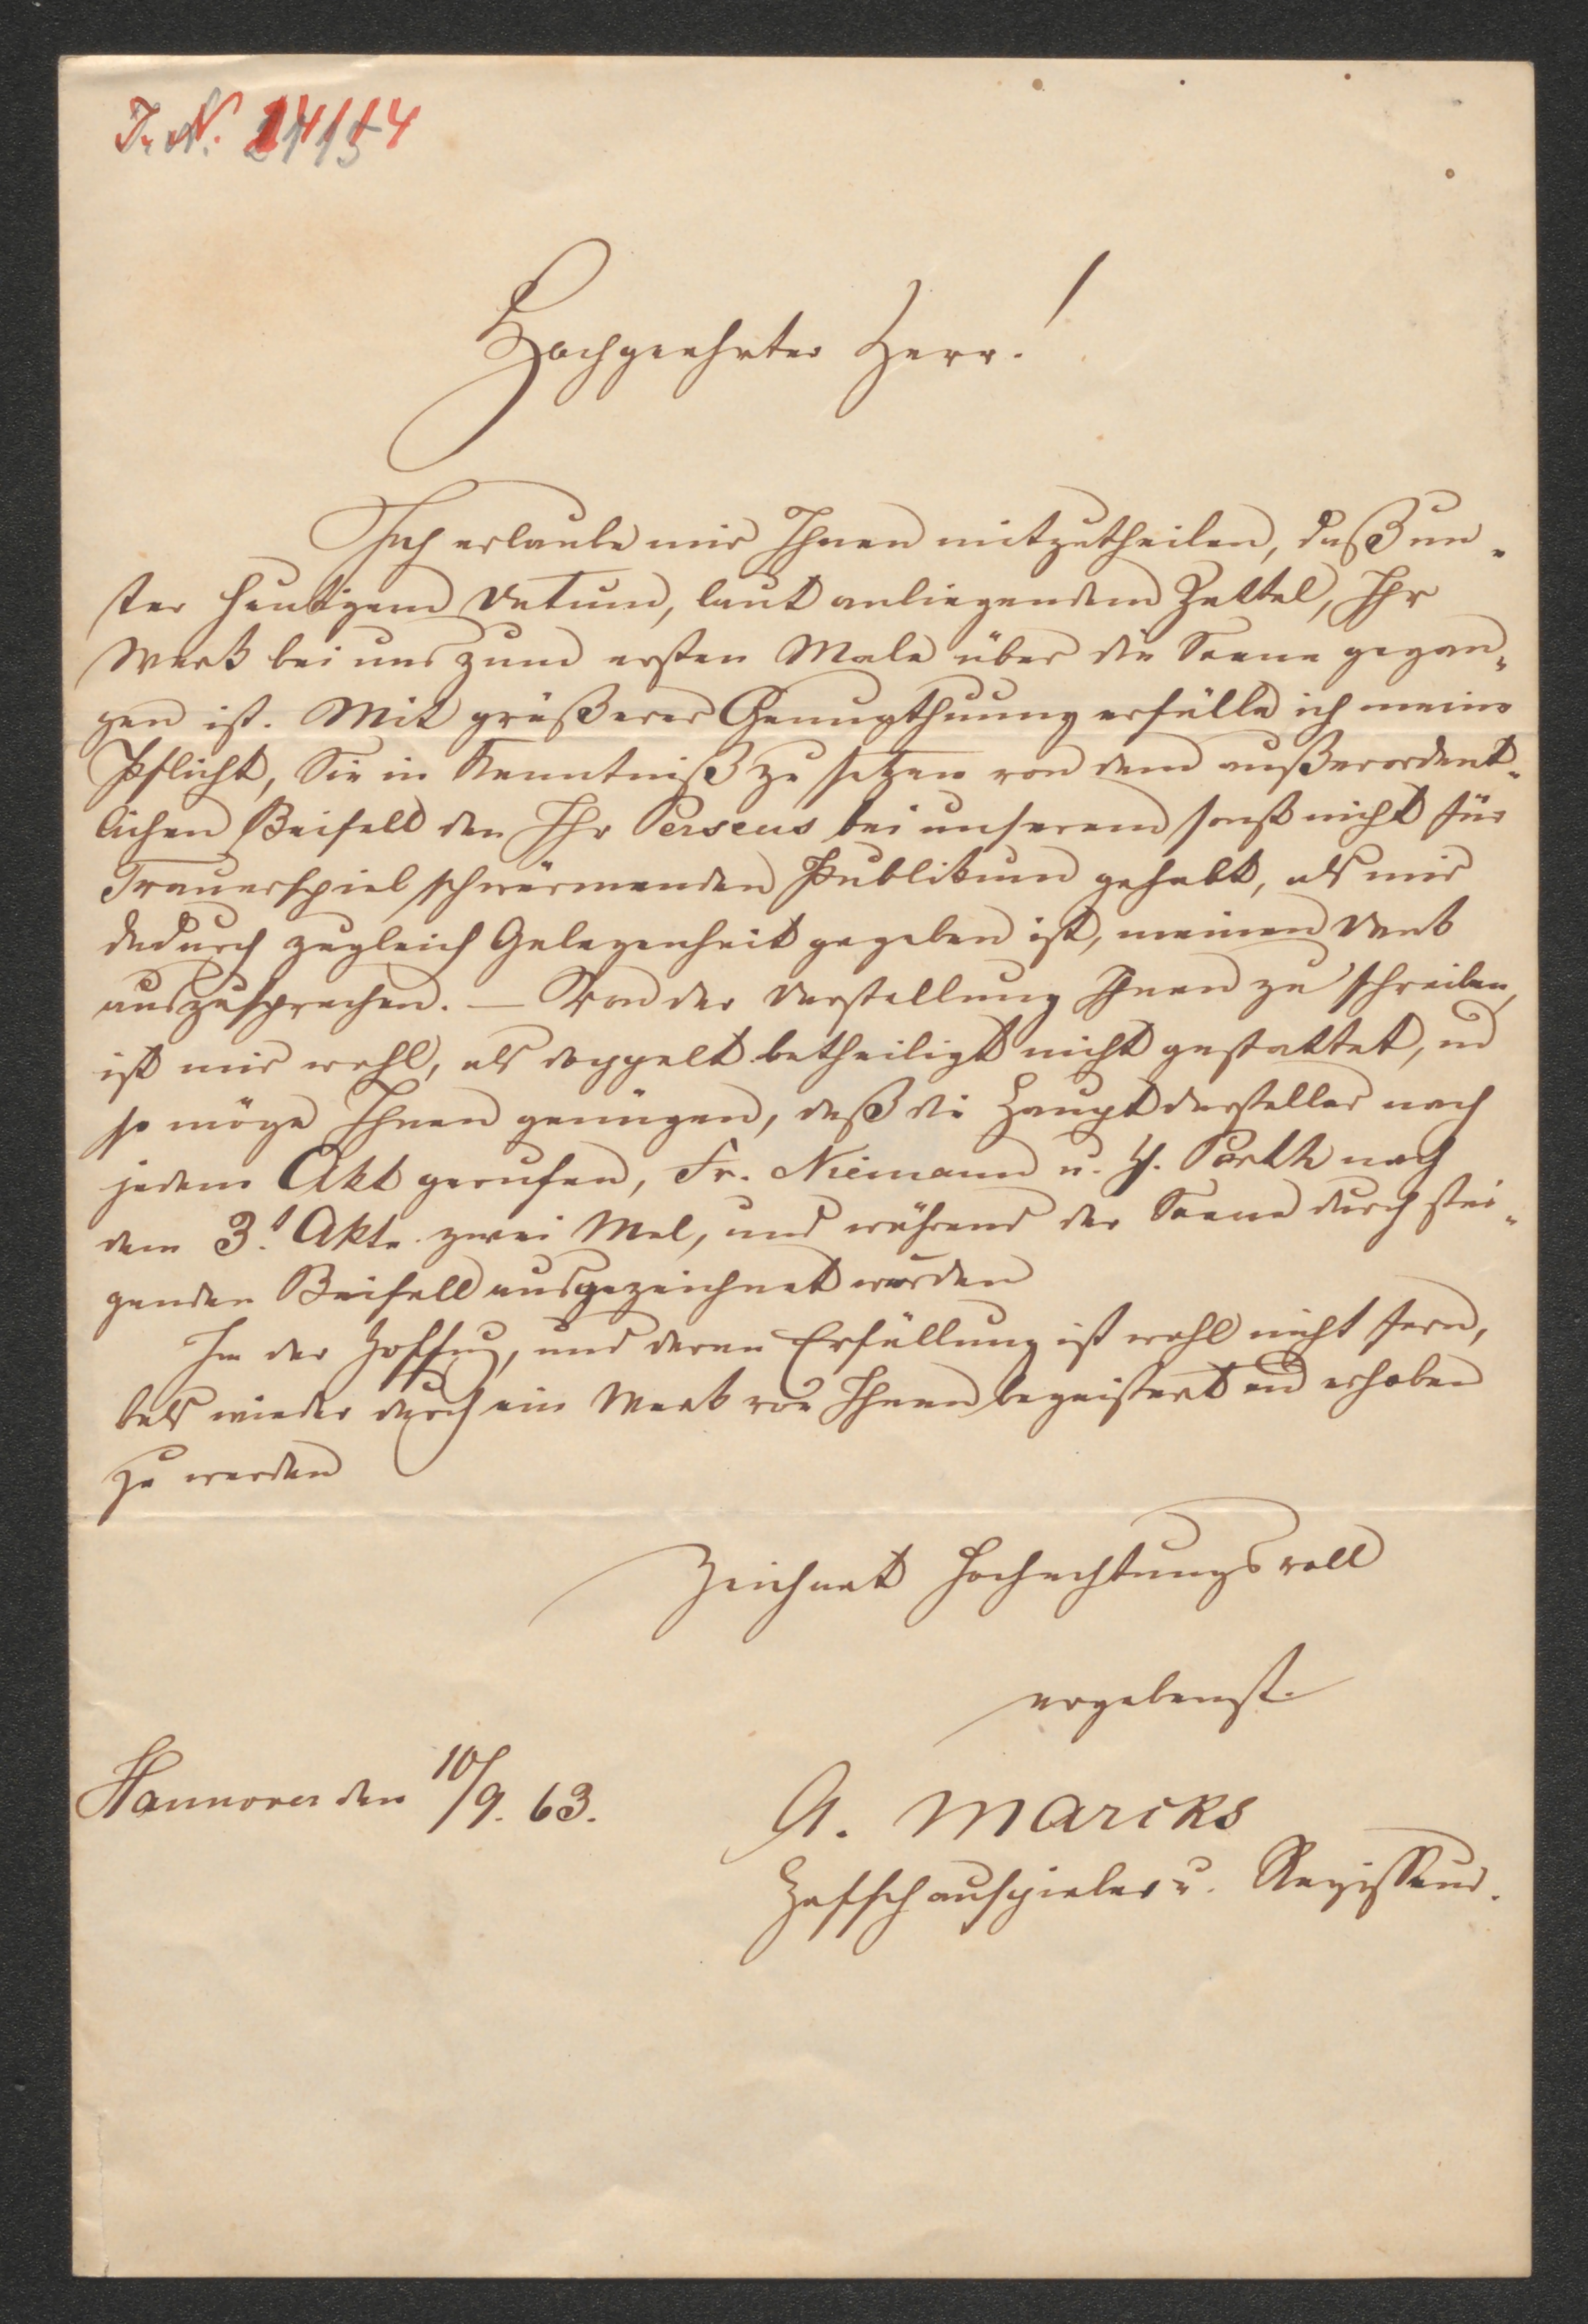 I. N. 24154
Hochgeehrter Herr!
Ich erlaube mir Ihnen mitzutheilen, daß un-
ter heutigem Datum, laut anliegendem Zettel, Ihr
Werk bei uns zum ersten Male über die Scene gegan-
gen ist. Mit größerer Genugthuung erfülle ich meine
Pflicht, Sie in Kenntniß zu setzen von dem außerordent-
lichen Beifall den Ihr Perseus bei unserem sonst nicht für
Trauerspiel schwärmenden Publikum gehabt, als mir
dadurch zugleich Gelegenheit gegeben ist, meinen Dank
auszusprechen. — Von der Darstellung Ihnen zu schreiben,
ist mir wohl, als doppelt betheiligt nicht gestattet, und
so möge Ihnen genügen, daß die Hauptdarsteller nach
jedem Akt gerufen, Fr. Niemann u. H. Porth nach
dem 3. Akte zwei Mal, und während der Scene durch stei-
genden Beifall ausgezeichnet wurden
In der Hoffnung, und deren Erfüllung ist wohl nicht fern,
bald wieder durch ein Werk von Ihnen begeistert und erhoben
zu werden
Zeichnet hochachtungsvoll
ergebenst
Hannover den 10/9. 63.
A. Marcks
Hofschauspieler u. Regisseur.